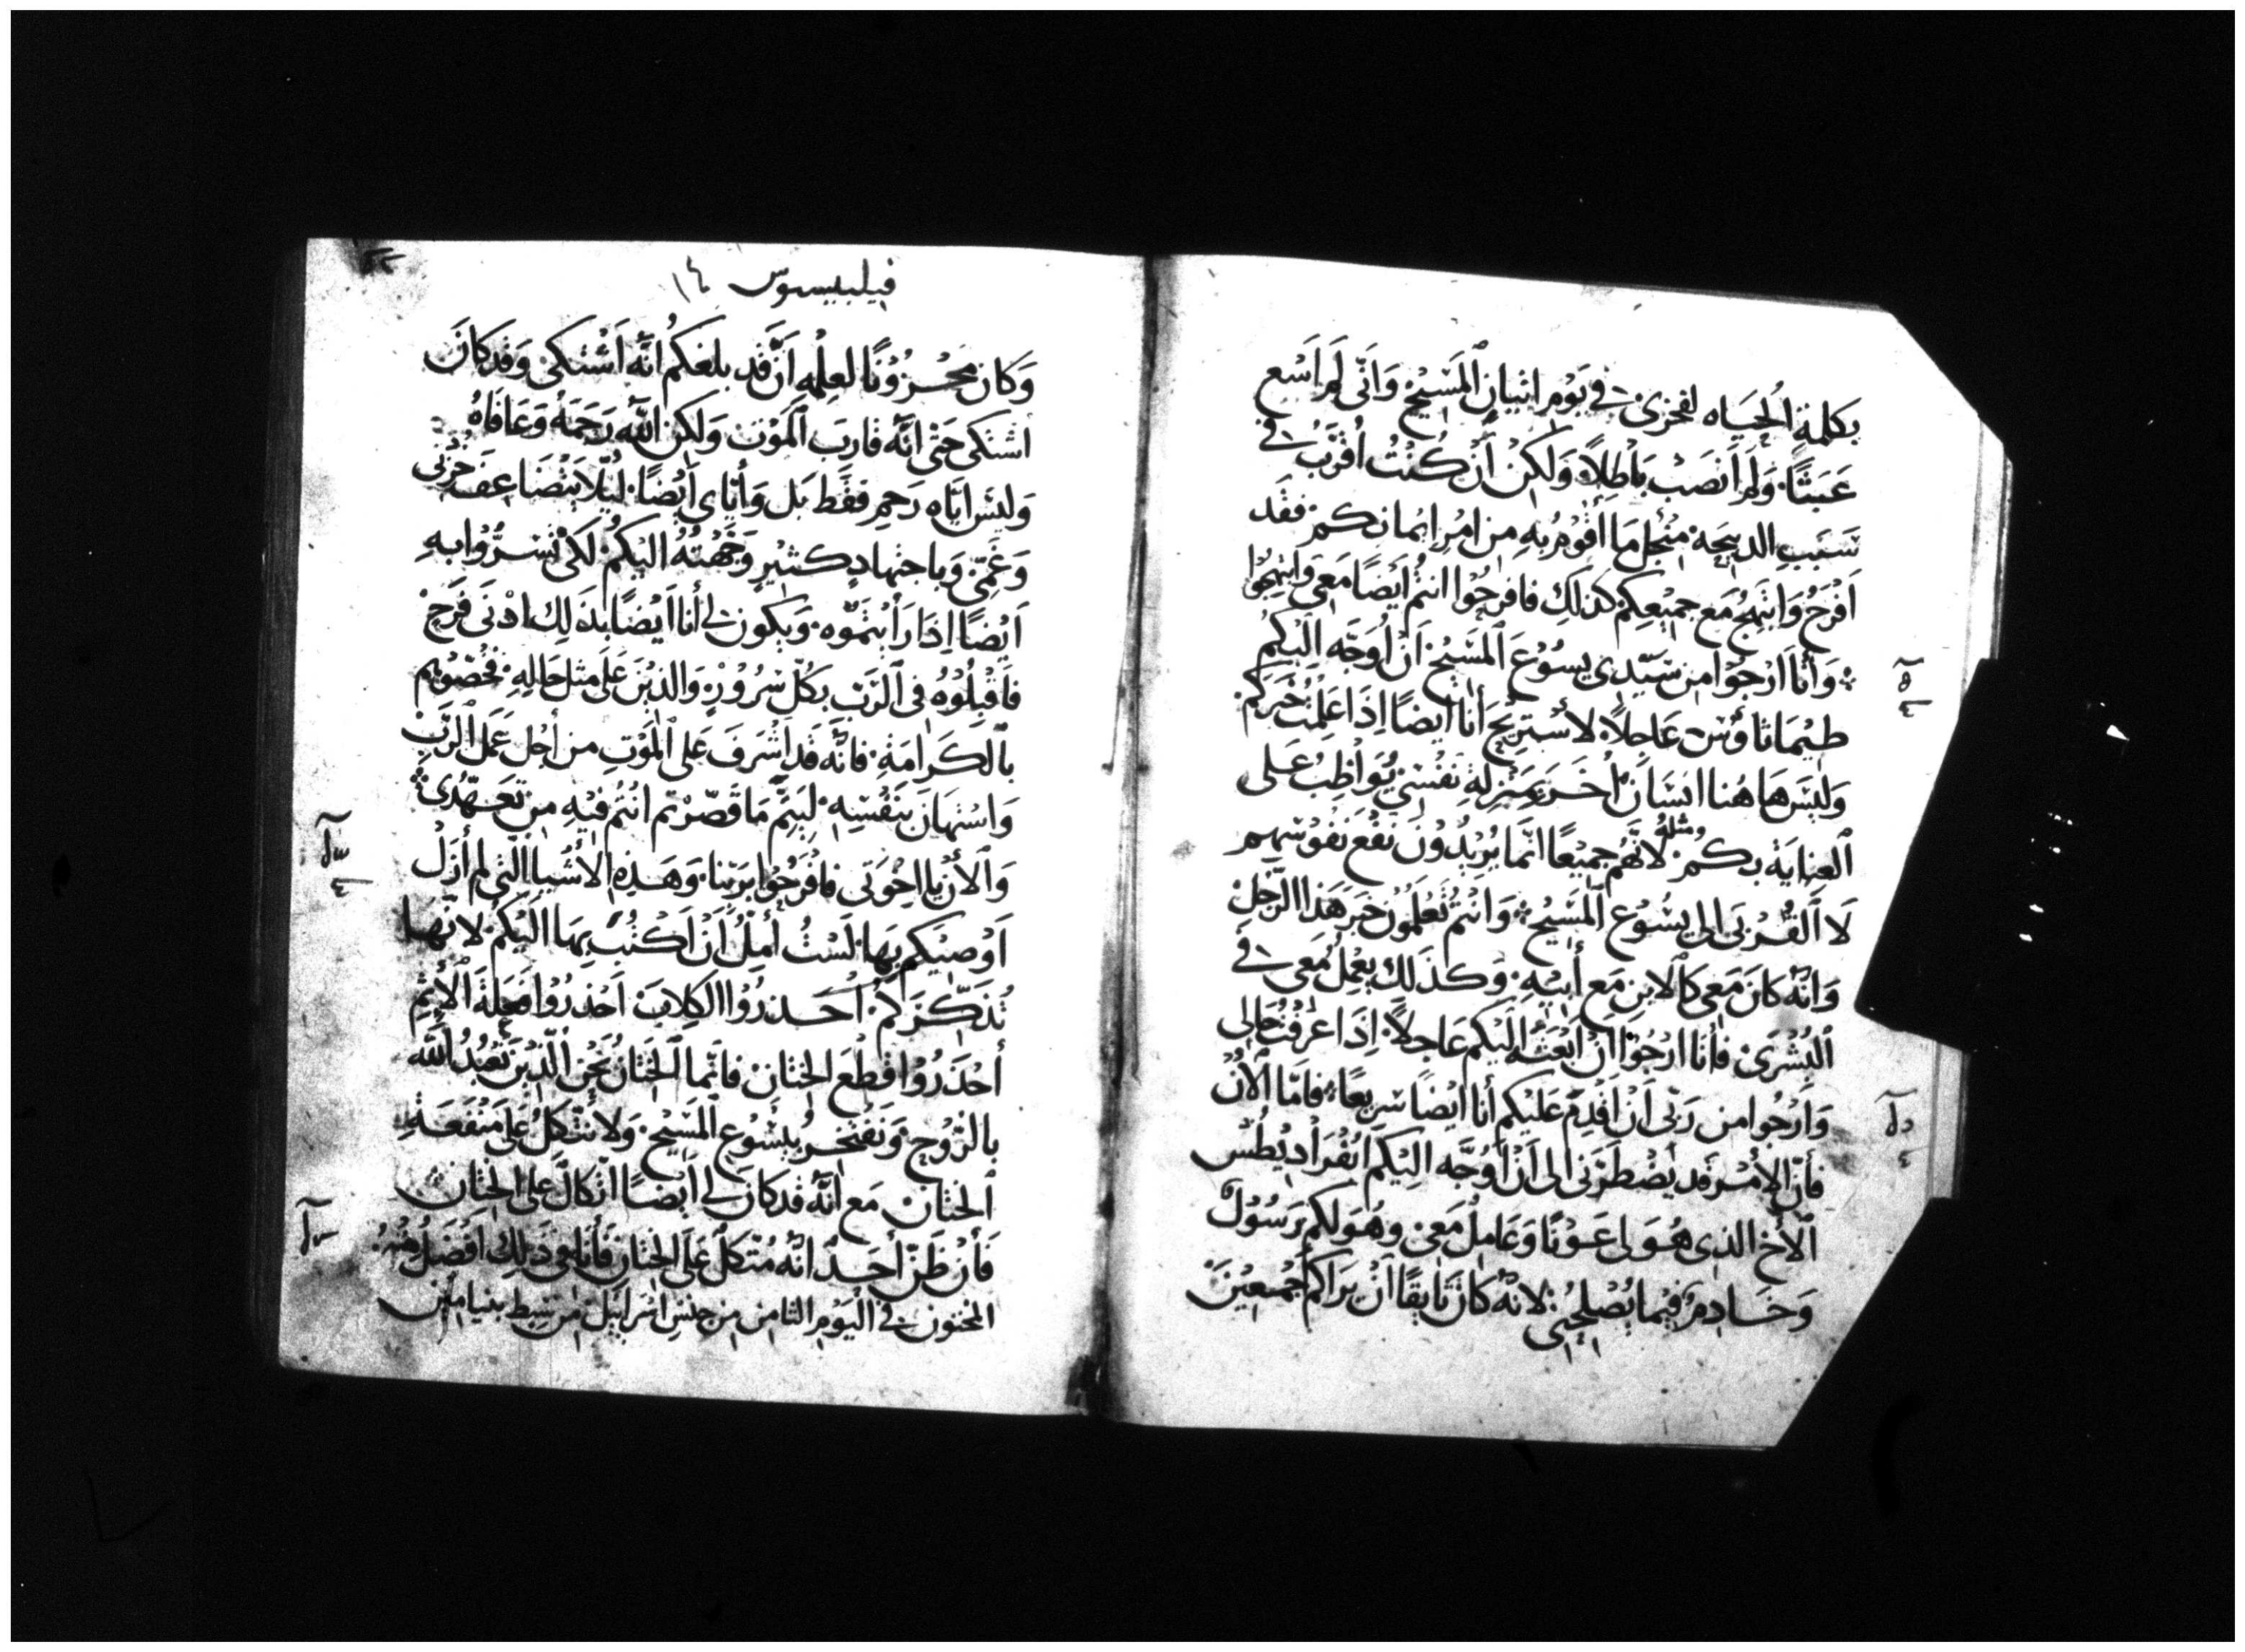 بكلمة الحياه لفخري في يوم اتيان المسيح واني لم اسع
عبثا ولم انصب باطلا ولكن ان كنت اقرب في
سبب الدبيحه منجل ما اقوم به من امر ايمانكم فقد
افرح وابتهج مع جميعكم كذلك فافرحوا انتم ايضا معي وابتهجوا
وانا ارجوا من سيدي يسوع المسيح ان اوجه اليكم
طيماثاوس عاجلا لاستريح انا ايضا اذا علمت خبركم
وليس هاهنا انسان اخر بمنزلة نفسي يواظب على
العناية بكم مثله لانهم جميعا انما يريدون نفع نفوسهم
لا القربى الى يسوع المسيح وانتم تعلمون خبر هذا الرجل
وانه كان معي كالابن مع ابيه وكذلك يعمل معي في
البشرى فانا ارجوا ان ابعثه اليكم عاجلا اذا عرفت حالي
وارجوا من ربي ان اقدم عليكم انا ايضا سريعا فاما الان
فان الامر قد يضطرني الى ان اوجه اليكم ابفراديطس
الاخ الذي هو لي عونا وعامل معي وهو لكم رسول
وخادم فيما يصلحني لانه كان تايقا ان يراكم اجمعين
فيليبسيوس
وكان محزونا لعلمه ان قد بلغكم انه اشتكى وقد كان
اشتكى حتى انه قارب الموت ولكن الله رحمه وعافاه
وليس اياه رحم فقط بل واياي ايضا ليلا يتضاعف حزني
وغمي وباجتهاد كثير وجهته اليكم لكي تسروا به
ايضا اذا رايتموه ويكون لي انا ايضا بذلك ادنى فرح
فاقبلوه في الرب بكل سرور والذين على مثل حاله فخصوهم
بالكرامة فانه قد اشرف على الموت من اجل عمل الرب
واستهان بنفسه ليتم ما قصرتم انتم فيه من تعهدي
والان يا اخوتي فافرحوا بربنا وهذه الاشيا التي لم ازل
اوصيكم بها لست امل ان اكتب بها اليكم لانها
تذكركم احذروا الكلاب احذروا فعلة الاثم
احذروا قطع الختان فانما الختان نحن الذين نعبد الله
بالروح ونفتخر بيسوع المسيح ولا نتكل على منفعة
الختان مع انه قد كان لي ايضا اتكال على الختان
فان ظن احد انه متكل على الختان فانا في ذلك افضل منه
المختون في اليوم الثامن من جنس اسراييل من سبط بنيامين